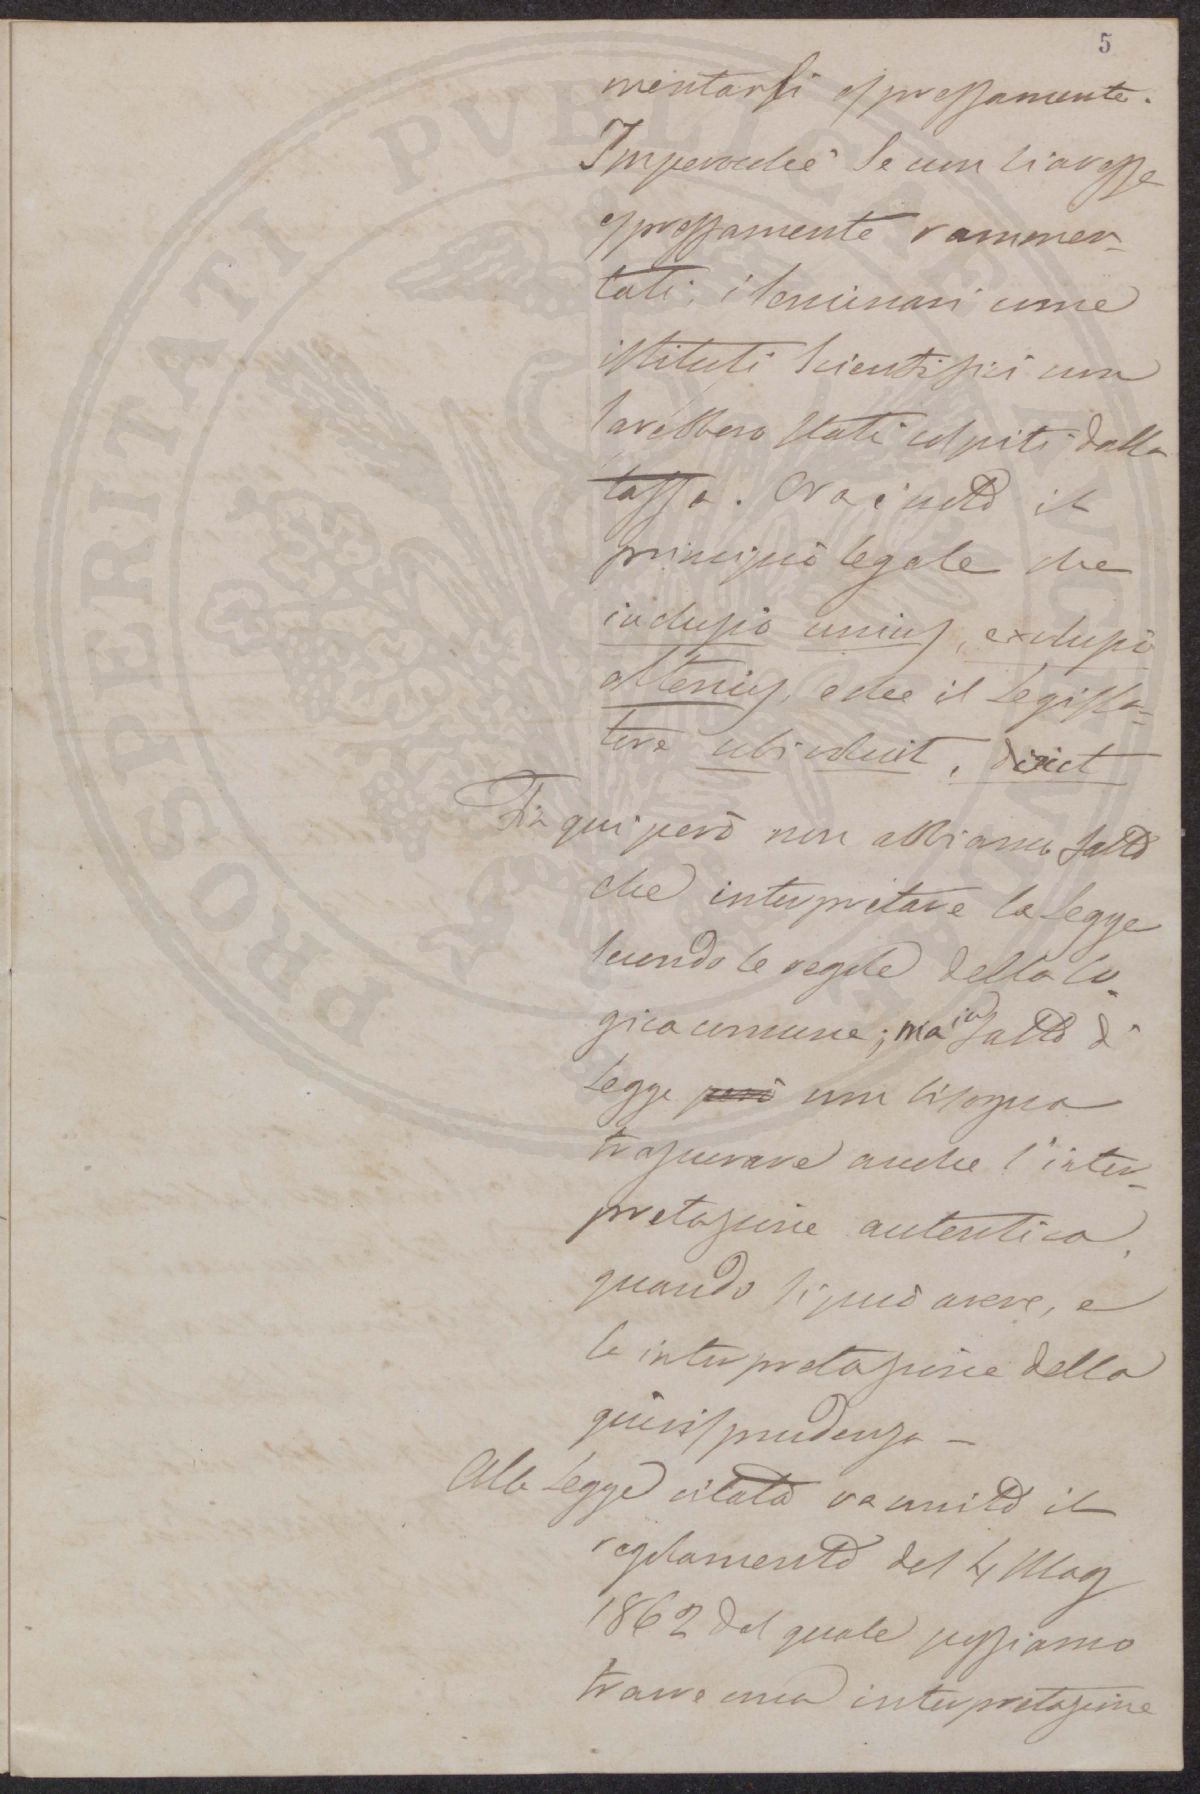 5
mentarsi espressamente.
Imperocchè se non li avesse
espressamente rammen-
tati, i Seminari come
istituti scientifici non
sarebbero stati colpiti dalla
tassa. Ora è noto il
principio legale che
inclusio unius, exclusio
alterius, e che il Legisla-
tore ubi voluit, dixit
Fin qui però non abbiamo fatto
che interpretare la Legge
secondo le regole della lo-
gica comune; ma in fatto di
Legge però non bisogna
trascurare anche l'inter-
pretazione autentica,
quando si può avere, e
la interpretazione della
giurisprudenza -
Alla Legge citata va unito il
regolamento del 4 Mag
1862 dal quale possiamo
trarre una interpretazione
PROSPERITATI PVBLICAE AVGENDAE